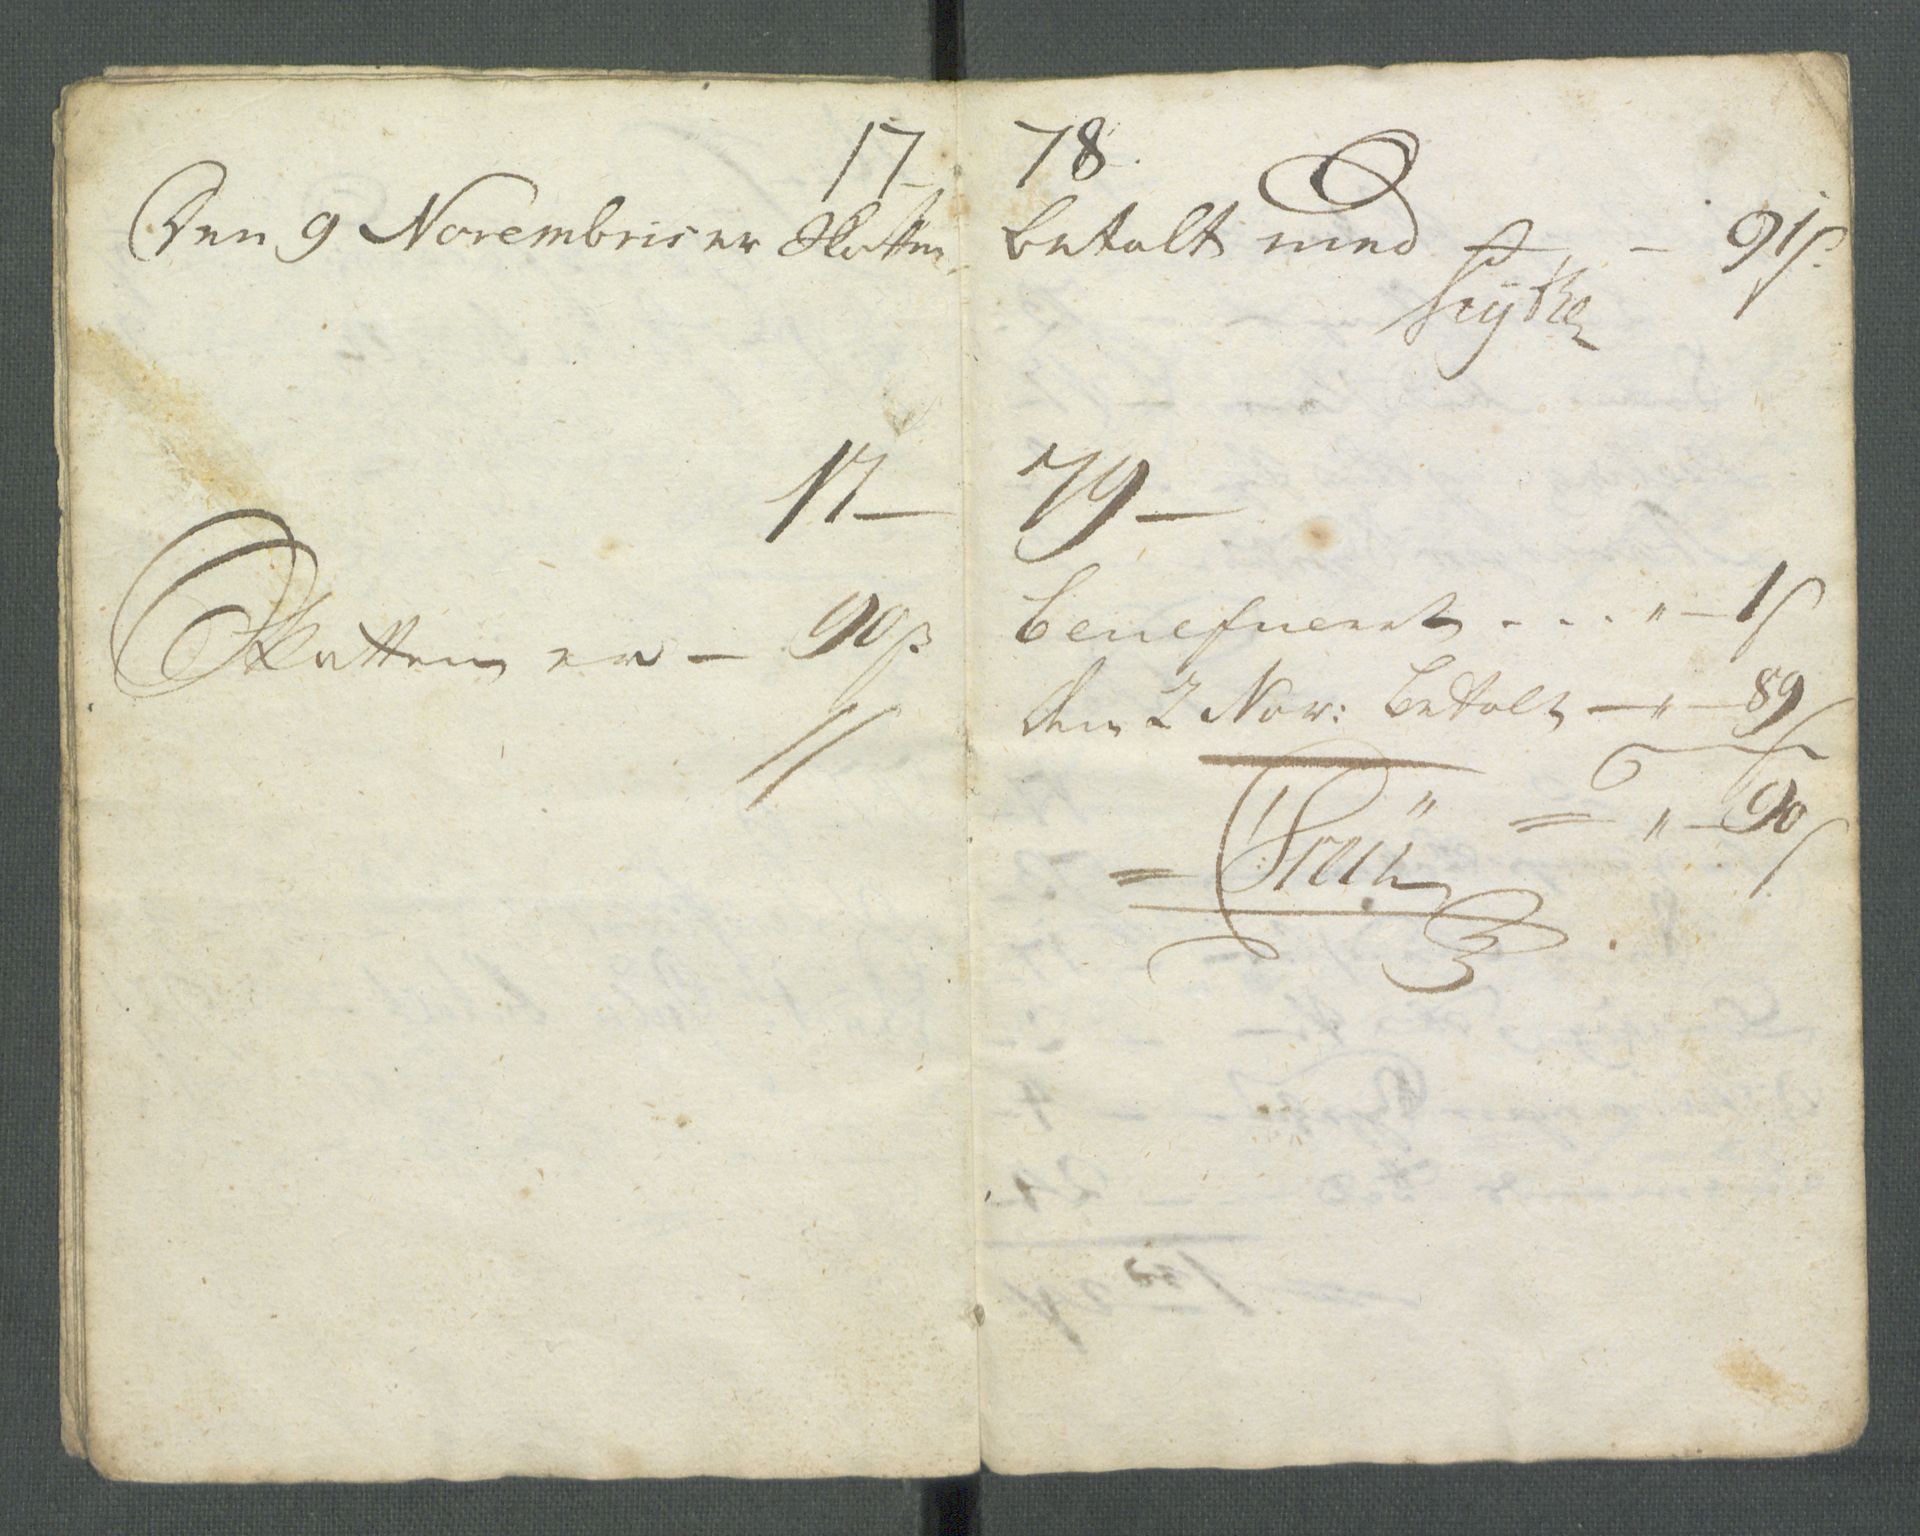 17 78.
Den 9 Novembris er Skatten betalt med - 91 s.
17 - 79 -
Skatten er - 90 s.
Beneficeret . . . " - 1 s
den 2 Nov: betalt - " - 89 s
= " - 90 s
=